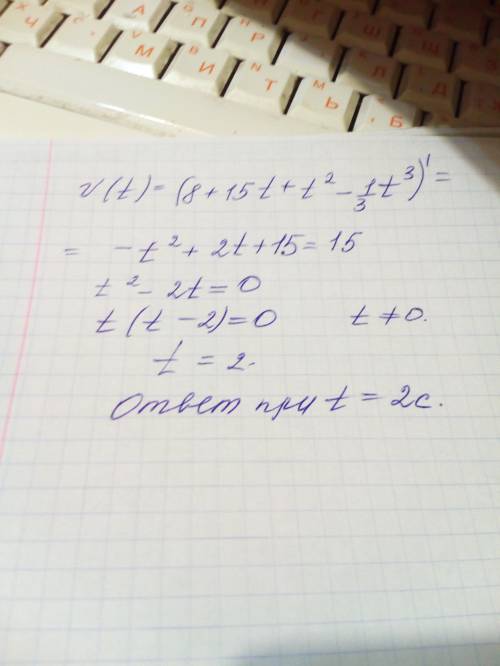 Ч П Р Г Ш Щ
М И Т Ь Б Л Д
v(t) = (8+15t+t² - 1/3 t³)' =
= -t² + 2t + 15 = 15
t² - 2t = 0
t(t - 2) = 0 t ≠ 0.
t = 2.
Ответ при t = 2с.